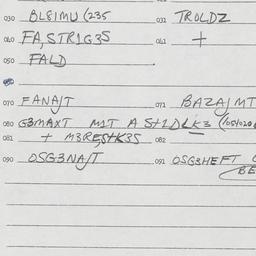 030 BLEIMU (235 031 TROLDZ
040 FA,STR1G3S 041 +
050 FALD
070 FANA/T 071 BAZA/MT
080 G3MAXT M1T A
081 + M3REStK3S 082
090 OSG3NA/T 091 OSG3HEFT